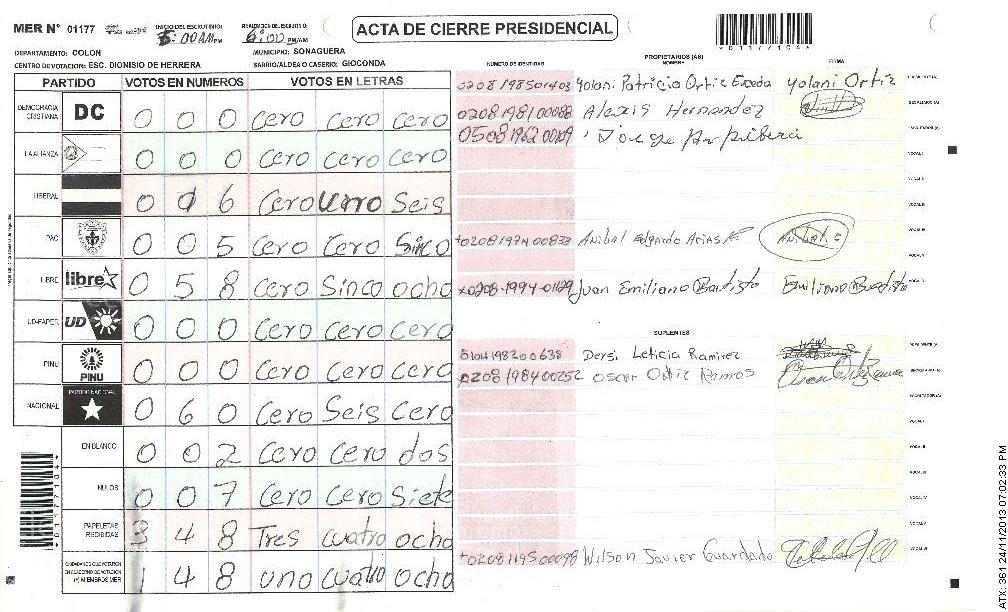 MER N° 01177 INICIO DEL ESCRUTINIO: 5:00 AM/PM 6:00 PM/AM ACTA DE CIERRE PRESIDENCIAL
DEPARTAMENTO: COLON MUNICIPIO: SONAGUERA
CENTRO DE VOTACION: ESC. DIONISIO DE HERRERA BARRIO/ALDEA O CASERIO: GIOCONDA
NUMERO DE IDENTIDAD PROPIETARIOS (AS) NOMBRE FIRMA
PARTIDO VOTOS EN NUMEROS VOTOS EN LETRAS
DEMOCRACIA CRISTIANA DC 0 0 0 Cero Cero Cero
LA ALIANZA 0 0 0 Cero Cero Cero
LIBERAL 0 1 6 Cero Uno Seis
PAC 0 0 5 Cero Cero Sinco
LIBRE libre 0 5 8 Cero Sinco ocho
UD-FAPER UD 0 0 0 Cero Cero Cero
PINU PINU 0 0 0 Cero Cero Cero
NACIONAL PARTIDO NACIONAL 0 6 0 Cero Seis Cero
EN BLANCO 0 0 2 Cero Cero dos
NULOS 0 0 7 Cero Cero Siete
PAPELETAS RECIBIDAS 3 4 8 Tres cuatro ocho
CIUDADANOS QUE VOTARON EN CUADERNO DE VOTACION (+) MIEMBROS MER 1 4 8 uno cuatro ocho
0208198501403 Yolani Patricia Ortiz Yolani Ortiz
0208198100088 Alexis Hernandez
0508196200109
0208197400833 Anibal Edgardo Arias Anibal
0208-1994-01129 Juan Emiliano Bautista Emiliano Bautista
SUPLENTES
Dersi Leticia Ramirez
0208198400252 Oscar Ortiz Ramos
Wilson Javier Guardado
*0117704*
ATX: 361 24/11/2013 07:02:33 PM